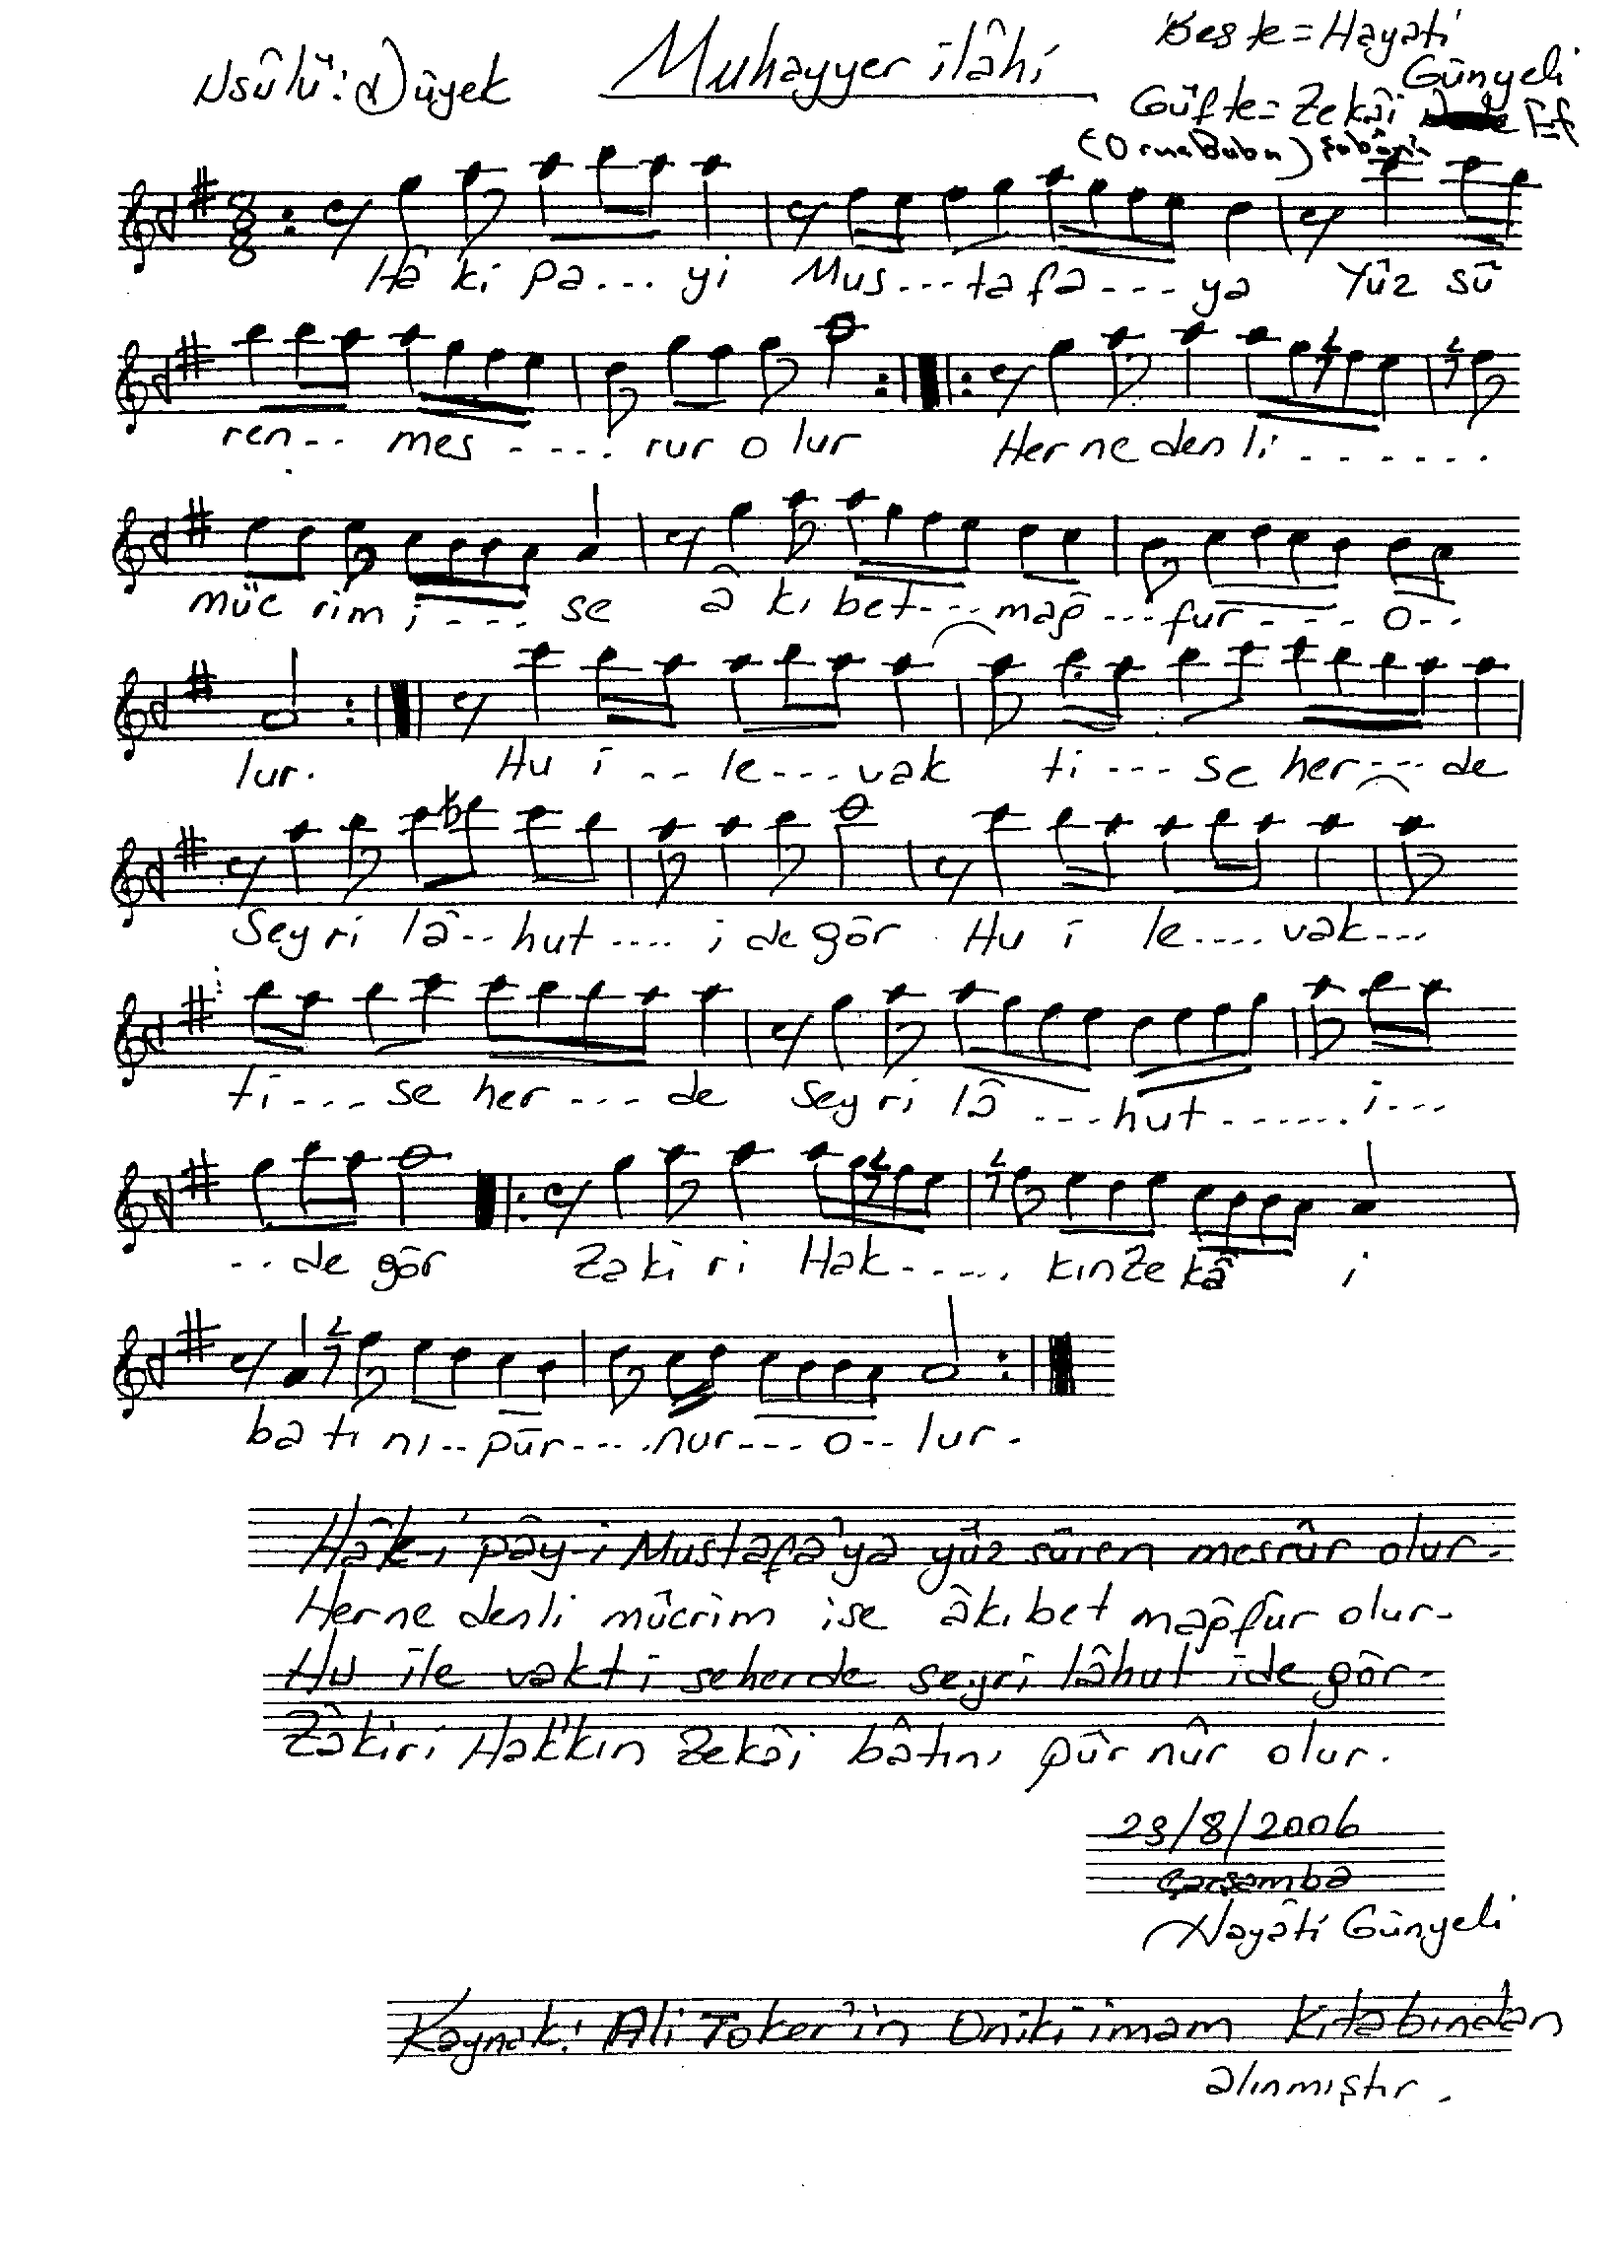 Usûlü: Düyek
Muhayyer ilâhi
Beste = Hayati
Günyeli
Güfte = Zekâi Ef
8
8
Hâ ki pa... yi Mus...tafa---ya Yüz sü
ren--. mes ----. rur o lur Her ne denli ------.
müc rim i---- se â kı bet---- mağ---fur---- o--.
lur. Hu i -- le---vak ti --- se her---- de
Seyri lâ--hut---- i de gör Hu i le---- vak---
ti---- se her---- de Seyri lâ ---hut ------. i---
--de gör Zaki ri Hak-----. kınZe kâ i
batı nı--pür----.nur---o--lur.
Hâk-i pây-i Mustafa'ya yüz süren mesrûr olur.
Herne denli mücrim ise âkıbet mağfur olur.
Hu ile vakti seherde seyri lâhut ide gör.
Zâkiri Hak'kın Zekâi bâtını pür nûr olur.
23/8/2006
Çarşamba
Hayâti Günyeli
Kaynak: Ali Toker'in Oniki imam Kitabından
alınmıştır.